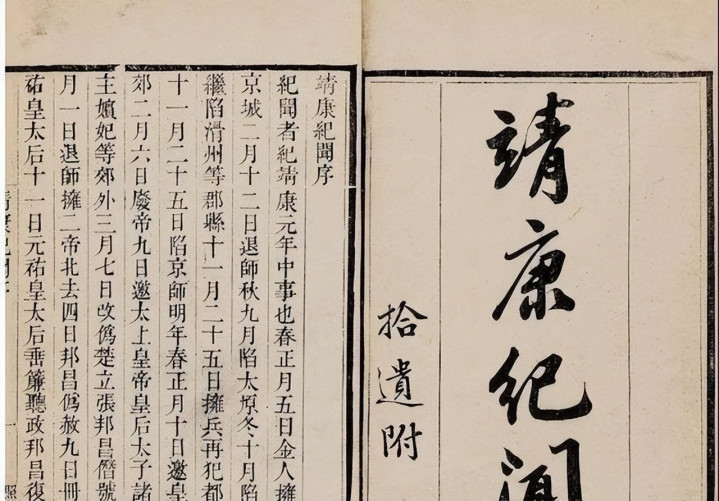 靖康紀聞
拾遺附
靖康紀聞序
紀聞者紀靖康元年中事也春正月五日金人擁
京城二月十二日退師秋九月陷太原冬十月陷
繼陷滑州等郡縣十一月二十五日擁兵再犯都
十一月二十五日陷京師明年春正月十日邀皇
郊二月六日廢帝九日邀太上皇帝皇后太子諸
主嬪妃等郊外三月七日改僞楚立張邦昌僭號
月一日退師擁二帝北去四日邦昌僞赦九日冊
祐皇太后十一日元祐皇太后垂簾聽政邦昌復
一